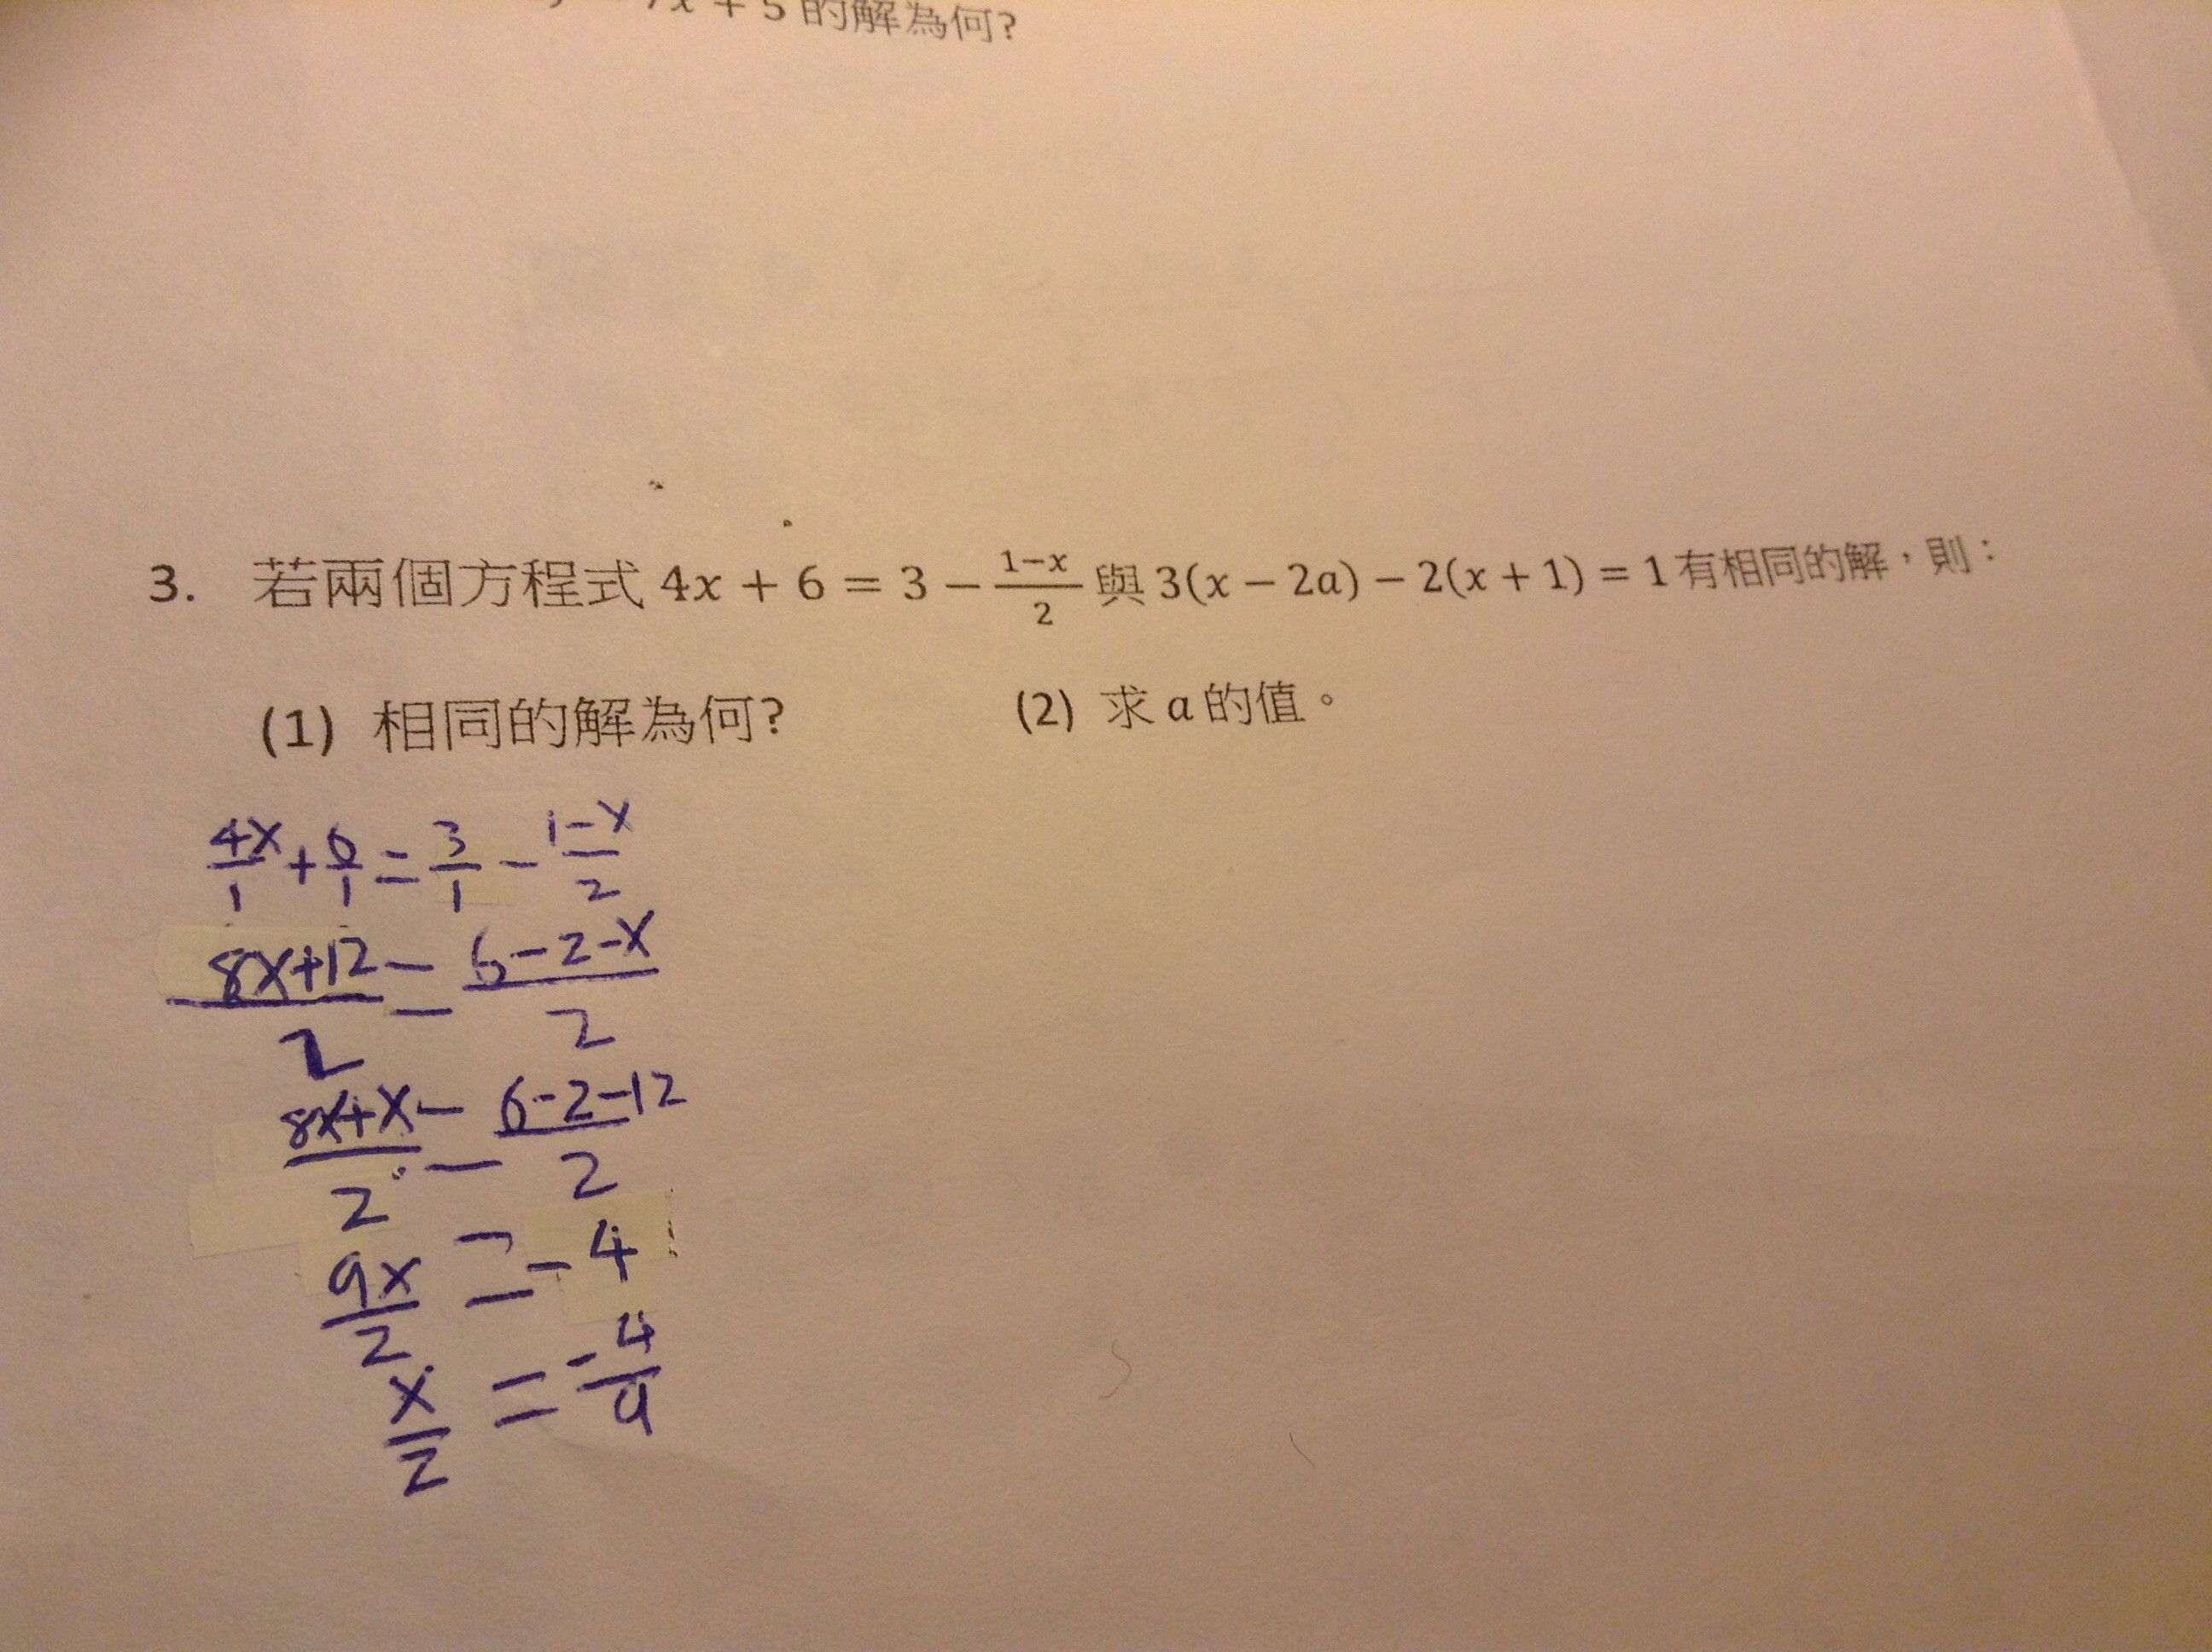 x + 5 的解為何?
3. 若兩個方程式 4x + 6 = 3 − \frac{1−x}{2} 與 3(x − 2a) − 2(x + 1) = 1 有相同的解，則：
(1) 相同的解為何? (2) 求 a 的值。
\frac{4x}{1} + \frac{6}{1} = \frac{3}{1} − \frac{1−x}{2}
\frac{8x+12}{2} = \frac{6−2−x}{2}
\frac{8x+x}{2} = \frac{6−2−12}{2}
\frac{9x}{2} = −4
\frac{x}{2} = \frac{−4}{9}